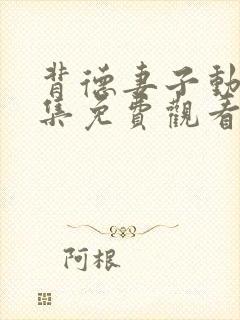 背德妻子動
集免費觀看
阿根